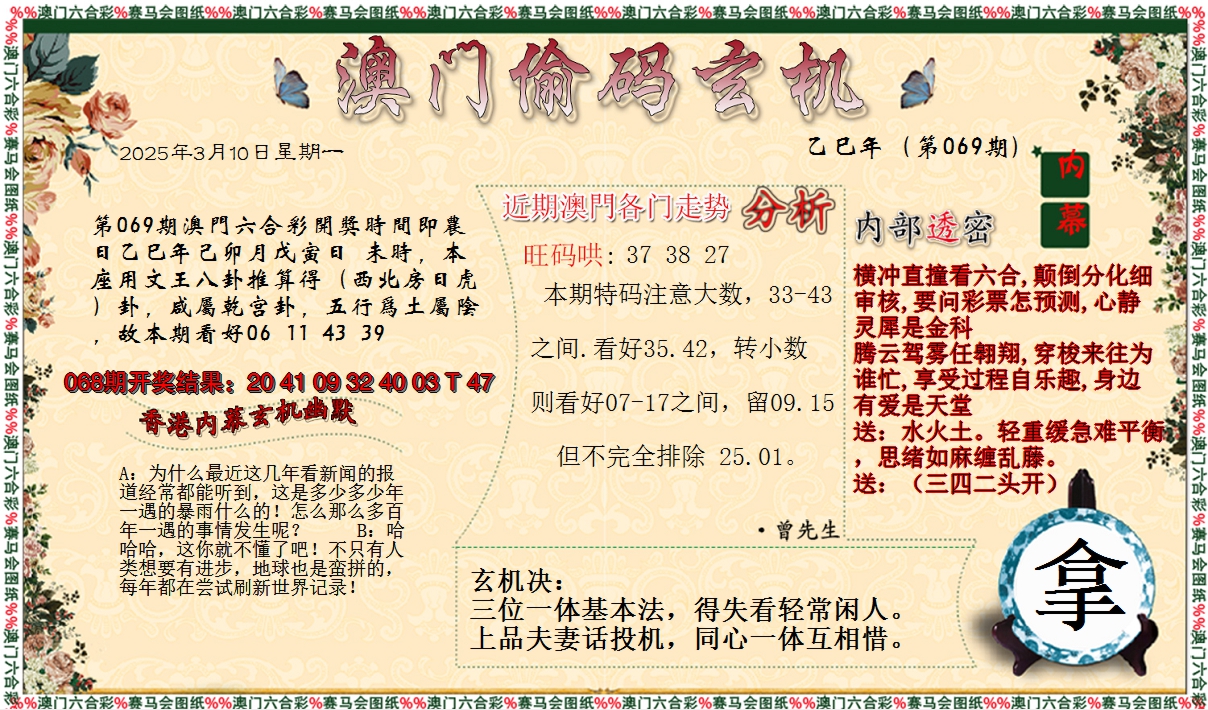 %%澳门六合彩%赛马会图纸%%澳门六合彩%赛马会图纸%%澳门六合彩%赛马会图纸%%澳门六合彩%赛马会图纸%%澳门六合彩%赛马会图纸%%澳门六合彩%赛马会图纸%%
澳门偷码玄机
2025年3月10日星期一
乙巳年（第069期）
第069期澳門六合彩開獎時間即農
日乙巳年己卯月戊寅日 未時，本
座用文王八卦推算得（西北房日虎
）卦，咸屬乾宫卦，五行爲土屬陰
，故本期看好06 11 43 39
068期开奖结果：20 41 09 32 40 03 T 47
香港内幕玄机幽默
A：为什么最近这几年看新闻的报
道经常都能听到，这是多少多少年
一遇的暴雨什么的！怎么那么多百
年一遇的事情发生呢？ B：哈
哈哈，这你就不懂了吧！不只有人
类想要有进步，地球也是蛮拼的，
每年都在尝试刷新世界记录！
近期澳門各门走势 分析
旺码哄: 37 38 27
本期特码注意大数，33-43
之间.看好35.42，转小数
则看好07-17之间，留09.15
但不完全排除 25.01。
·曾先生
玄机决：
三位一体基本法，得失看轻常闲人。
上品夫妻话投机，同心一体互相惜。
内幕
内部透密
横冲直撞看六合,颠倒分化细
审核,要问彩票怎预测,心静
灵犀是金科
腾云驾雾任翱翔,穿梭来往为
谁忙,享受过程自乐趣,身边
有爱是天堂
送：水火土。轻重缓急难平衡
，思绪如麻缠乱藤。
送：（三四二头开）
拿
%%澳门六合彩%赛马会图纸%%澳门六合彩%赛马会图纸%%澳门六合彩%赛马会图纸%%澳门六合彩%赛马会图纸%%澳门六合彩%赛马会图纸%%澳门六合彩%赛马会图纸%%